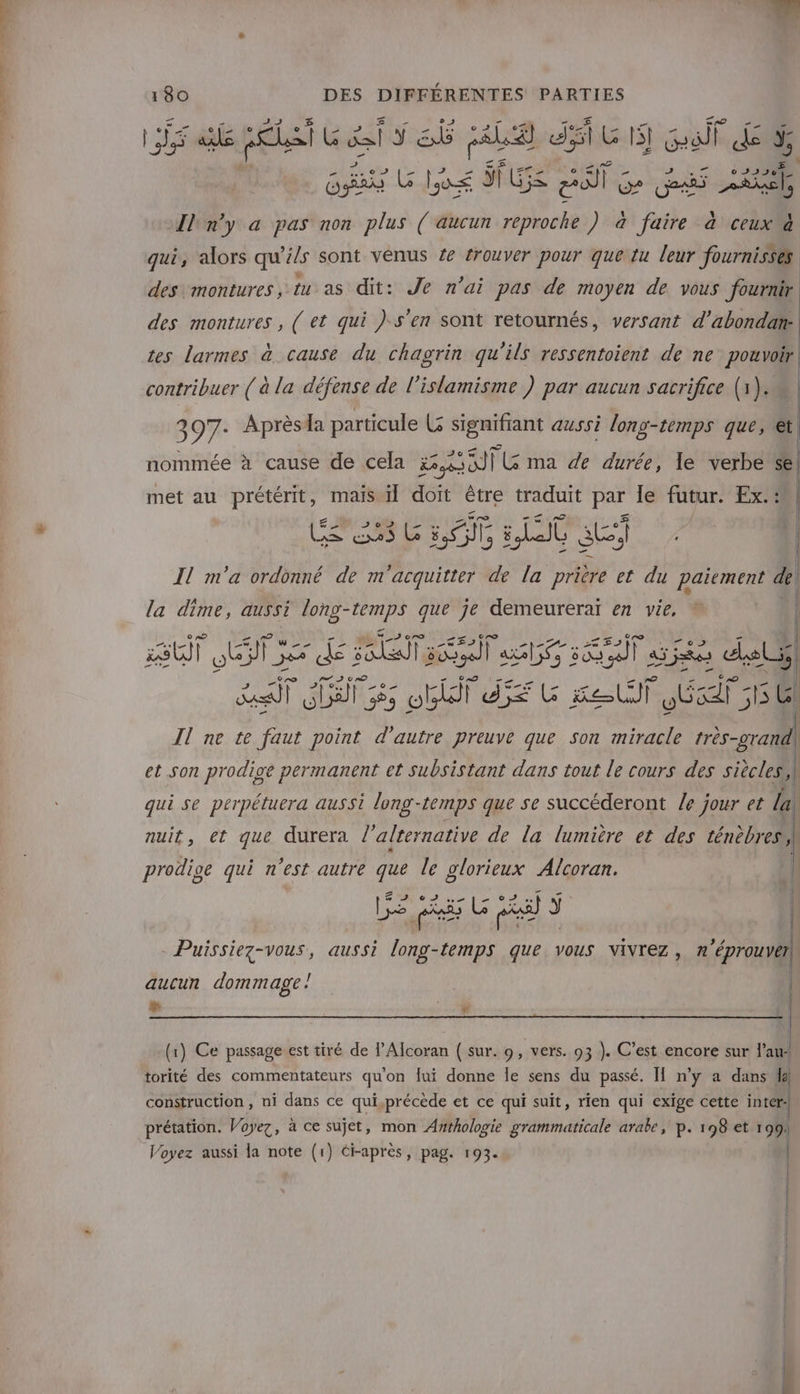 180 DES DIFFÉRENTES PARTIES
وَلَا عَلَى ٱلَّذِينَ إِذَا مَا أَتَوْكَ لِتَحْمِلَهُمْ قُلْتَ لَا أَجِدُ مَا أَحْمِلُكُمْ عَلَيْهِ تَوَلَّوْا
وَأَعْيُنُهُمْ تَفِيضُ مِنَ ٱلدَّمْعِ حَزَنًا أَلَّا يَجِدُوا مَا يُنْفِقُونَ
Il n'y a pas non plus ( aucun reproche ) à faire à ceux à
qui, alors qu'ils sont venus te trouver pour que tu leur fournisses
des montures, tu as dit: Je n'ai pas de moyen de vous fournir
des montures, ( et qui ) s'en sont retournés, versant d'abondan-
tes larmes à cause du chagrin qu'ils ressentoient de ne pouvoir
contribuer ( à la défense de l'islamisme ) par aucun sacrifice (1).
397. Après la particule مَا signifiant aussi long-temps que, et
nommée à cause de cela مَا ٱلدَّيْمُومَةِ ma de durée, le verbe se
met au prétérit, mais il doit être traduit par le futur. Ex.:
أَوْصَانِى بِٱلصَّلٰوةِ وَٱلزَّكٰوةِ مَا دُمْتُ حَيًّا
Il m'a ordonné de m'acquitter de la prière et du paiement de
la dîme, aussi long-temps que je demeurerai en vie.
مَا دَارَ ٱلْحَدَثَانِ ٱلنَّاصِعَةِ مَا تَحَوَّلَ ٱلْمَلَوَانِ وَهُوَ ٱلْقُرْآنُ ٱلْمَجِيدُ
Il ne te faut point d'autre preuve que son miracle très-grand
et son prodige permanent et subsistant dans tout le cours des siècles,
qui se perpétuera aussi long-temps que se succéderont le jour et la
nuit, et que durera l'alternative de la lumière et des ténèbres,
prodige qui n'est autre que le glorieux Alcoran.
لَا لَقِيتُمْ مَا بَقِيتُمْ ضُرًّا
Puissiez-vous, aussi long-temps que vous vivrez, n'éprouver
aucun dommage!
(1) Ce passage est tiré de l'Alcoran ( sur. 9, vers. 93 ). C'est encore sur l'au-
torité des commentateurs qu'on lui donne le sens du passé. Il n'y a dans la
construction, ni dans ce qui précède et ce qui suit, rien qui exige cette inter-
prétation. Voyez, à ce sujet, mon Anthologie grammaticale arabe, p. 198 et 199.
Voyez aussi la note (1) ci-après, pag. 193.